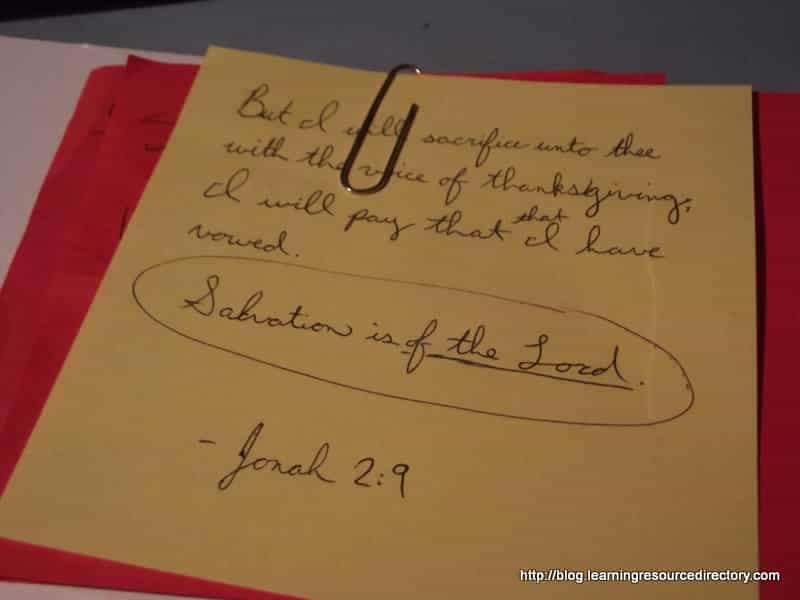 But I will sacrifice unto thee
with the voice of thanksgiving;
I will pay that that I have
vowed.
Salvation is of the Lord.
- Jonah 2:9
http://blog.learningresourcedirectory.com